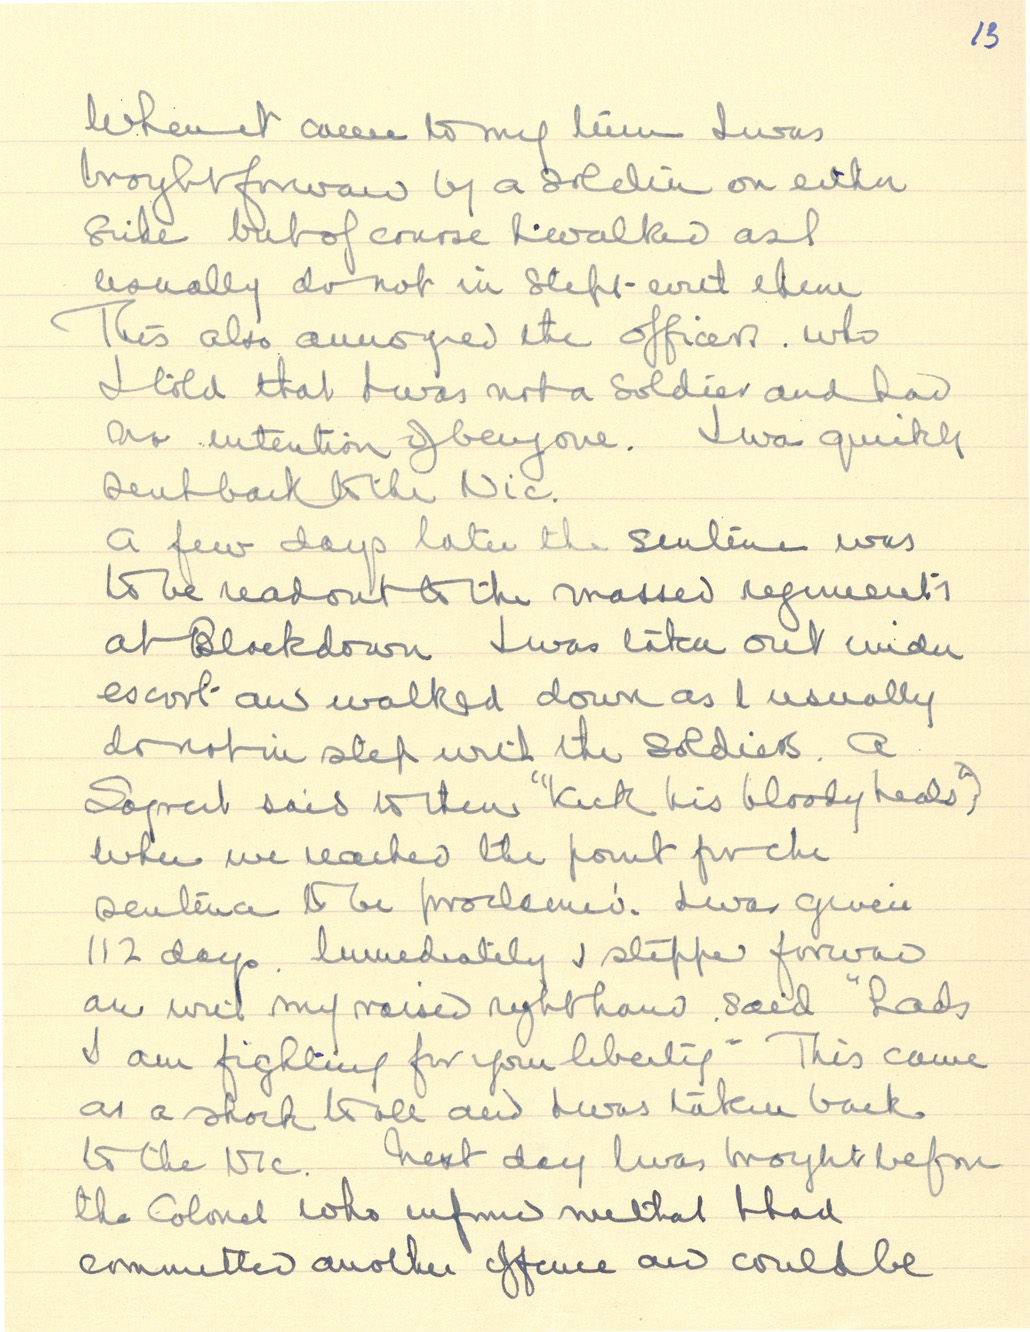 13
When it came to my turn I was
brought forward by a soldier on either
side but of course I walked as I
usually do not in step with them
This also annoyed the officers. who
I told that I was not a soldier and had
no intention of being one. I was quickly
sent back to the Nic.
A few days later the sentence was
to be read out to the massed regiments
at Blackdown I was taken out under
escort and walked down as I usually
do not in step with the soldiers. A
Sergeant said to them "Kick his bloody heals"
when we reached the point for the
sentence to be proclaimed. I was given
112 days. Immediately I stepped forward
and with my raised right hand said "Lads
I am fighting for your liberty" This came
as a shock to all and I was taken back
to the Nic. Next day I was brought before
the Colonel who informed me that I had
committed another offence and could be